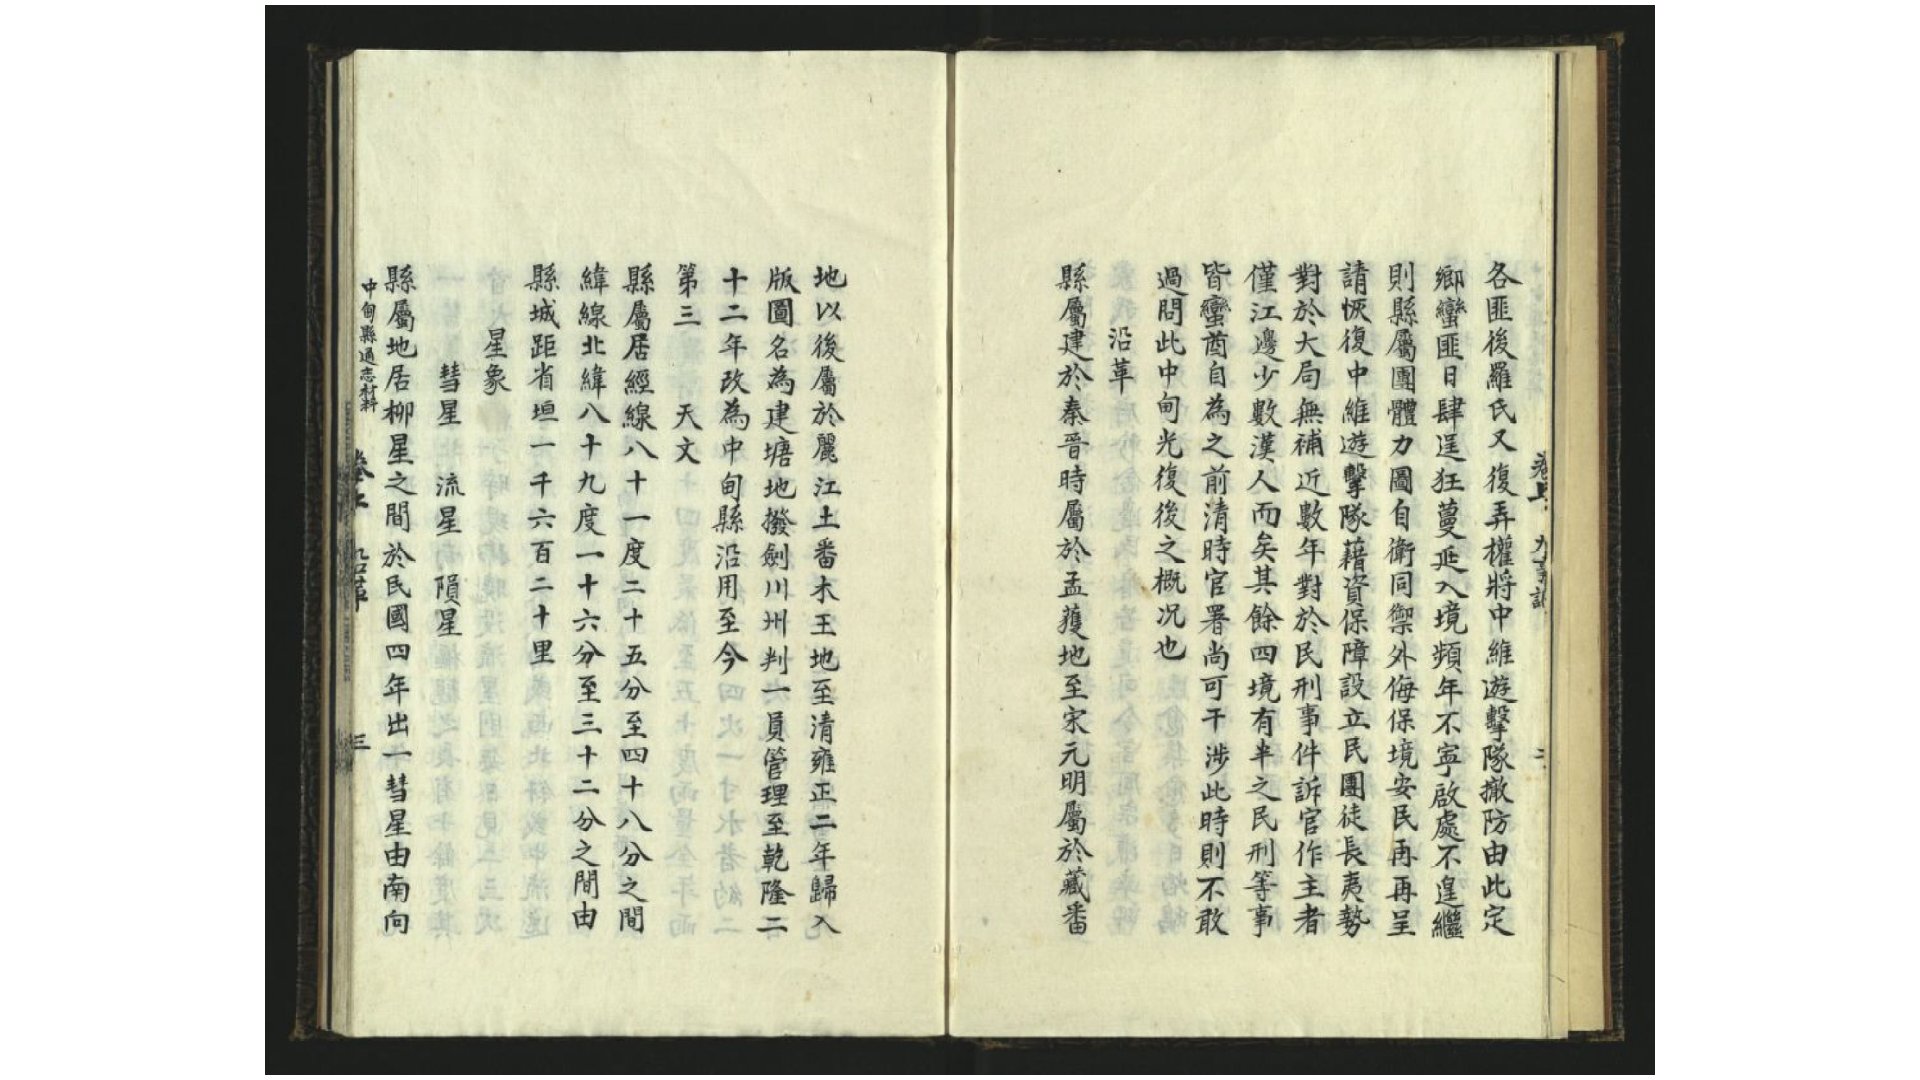 各匪後羅氏又復弄權將中維遊擊隊撤防由此定
鄉蠻匪日肆逞狂蔓延入境頻年不寧啟處不遑繼
則縣屬團體力圖自衛同禦外侮保境安民再再呈
請恢復中維遊擊隊藉資保障設立民團徒長夷勢
對於大局無補近數年對於民刑事件訴官作主者
僅江邊少數漢人而矣其餘四境有半之民刑等事
皆蠻酋自為之前清時官署尚可干涉此時則不敢
過問此中甸光復後之概況也
沿革
縣屬建於秦晉時屬於孟獲地至宋元明屬於藏番
地以後屬於麗江土番木王地至清雍正二年歸入
版圖名為建塘地撥劍川州州判一員管理至乾隆二
十二年改為中甸縣沿用至今
第三 天文
縣屬居經線八十一度二十五分至四十八分之間
緯線北緯八十九度一十六分至三十二分之間由
縣城距省垣一千六百二十里
星象
彗星 流星 隕星
縣屬地居柳星之間於民國四年出一彗星由南向
中甸縣通志材料 沿革 三